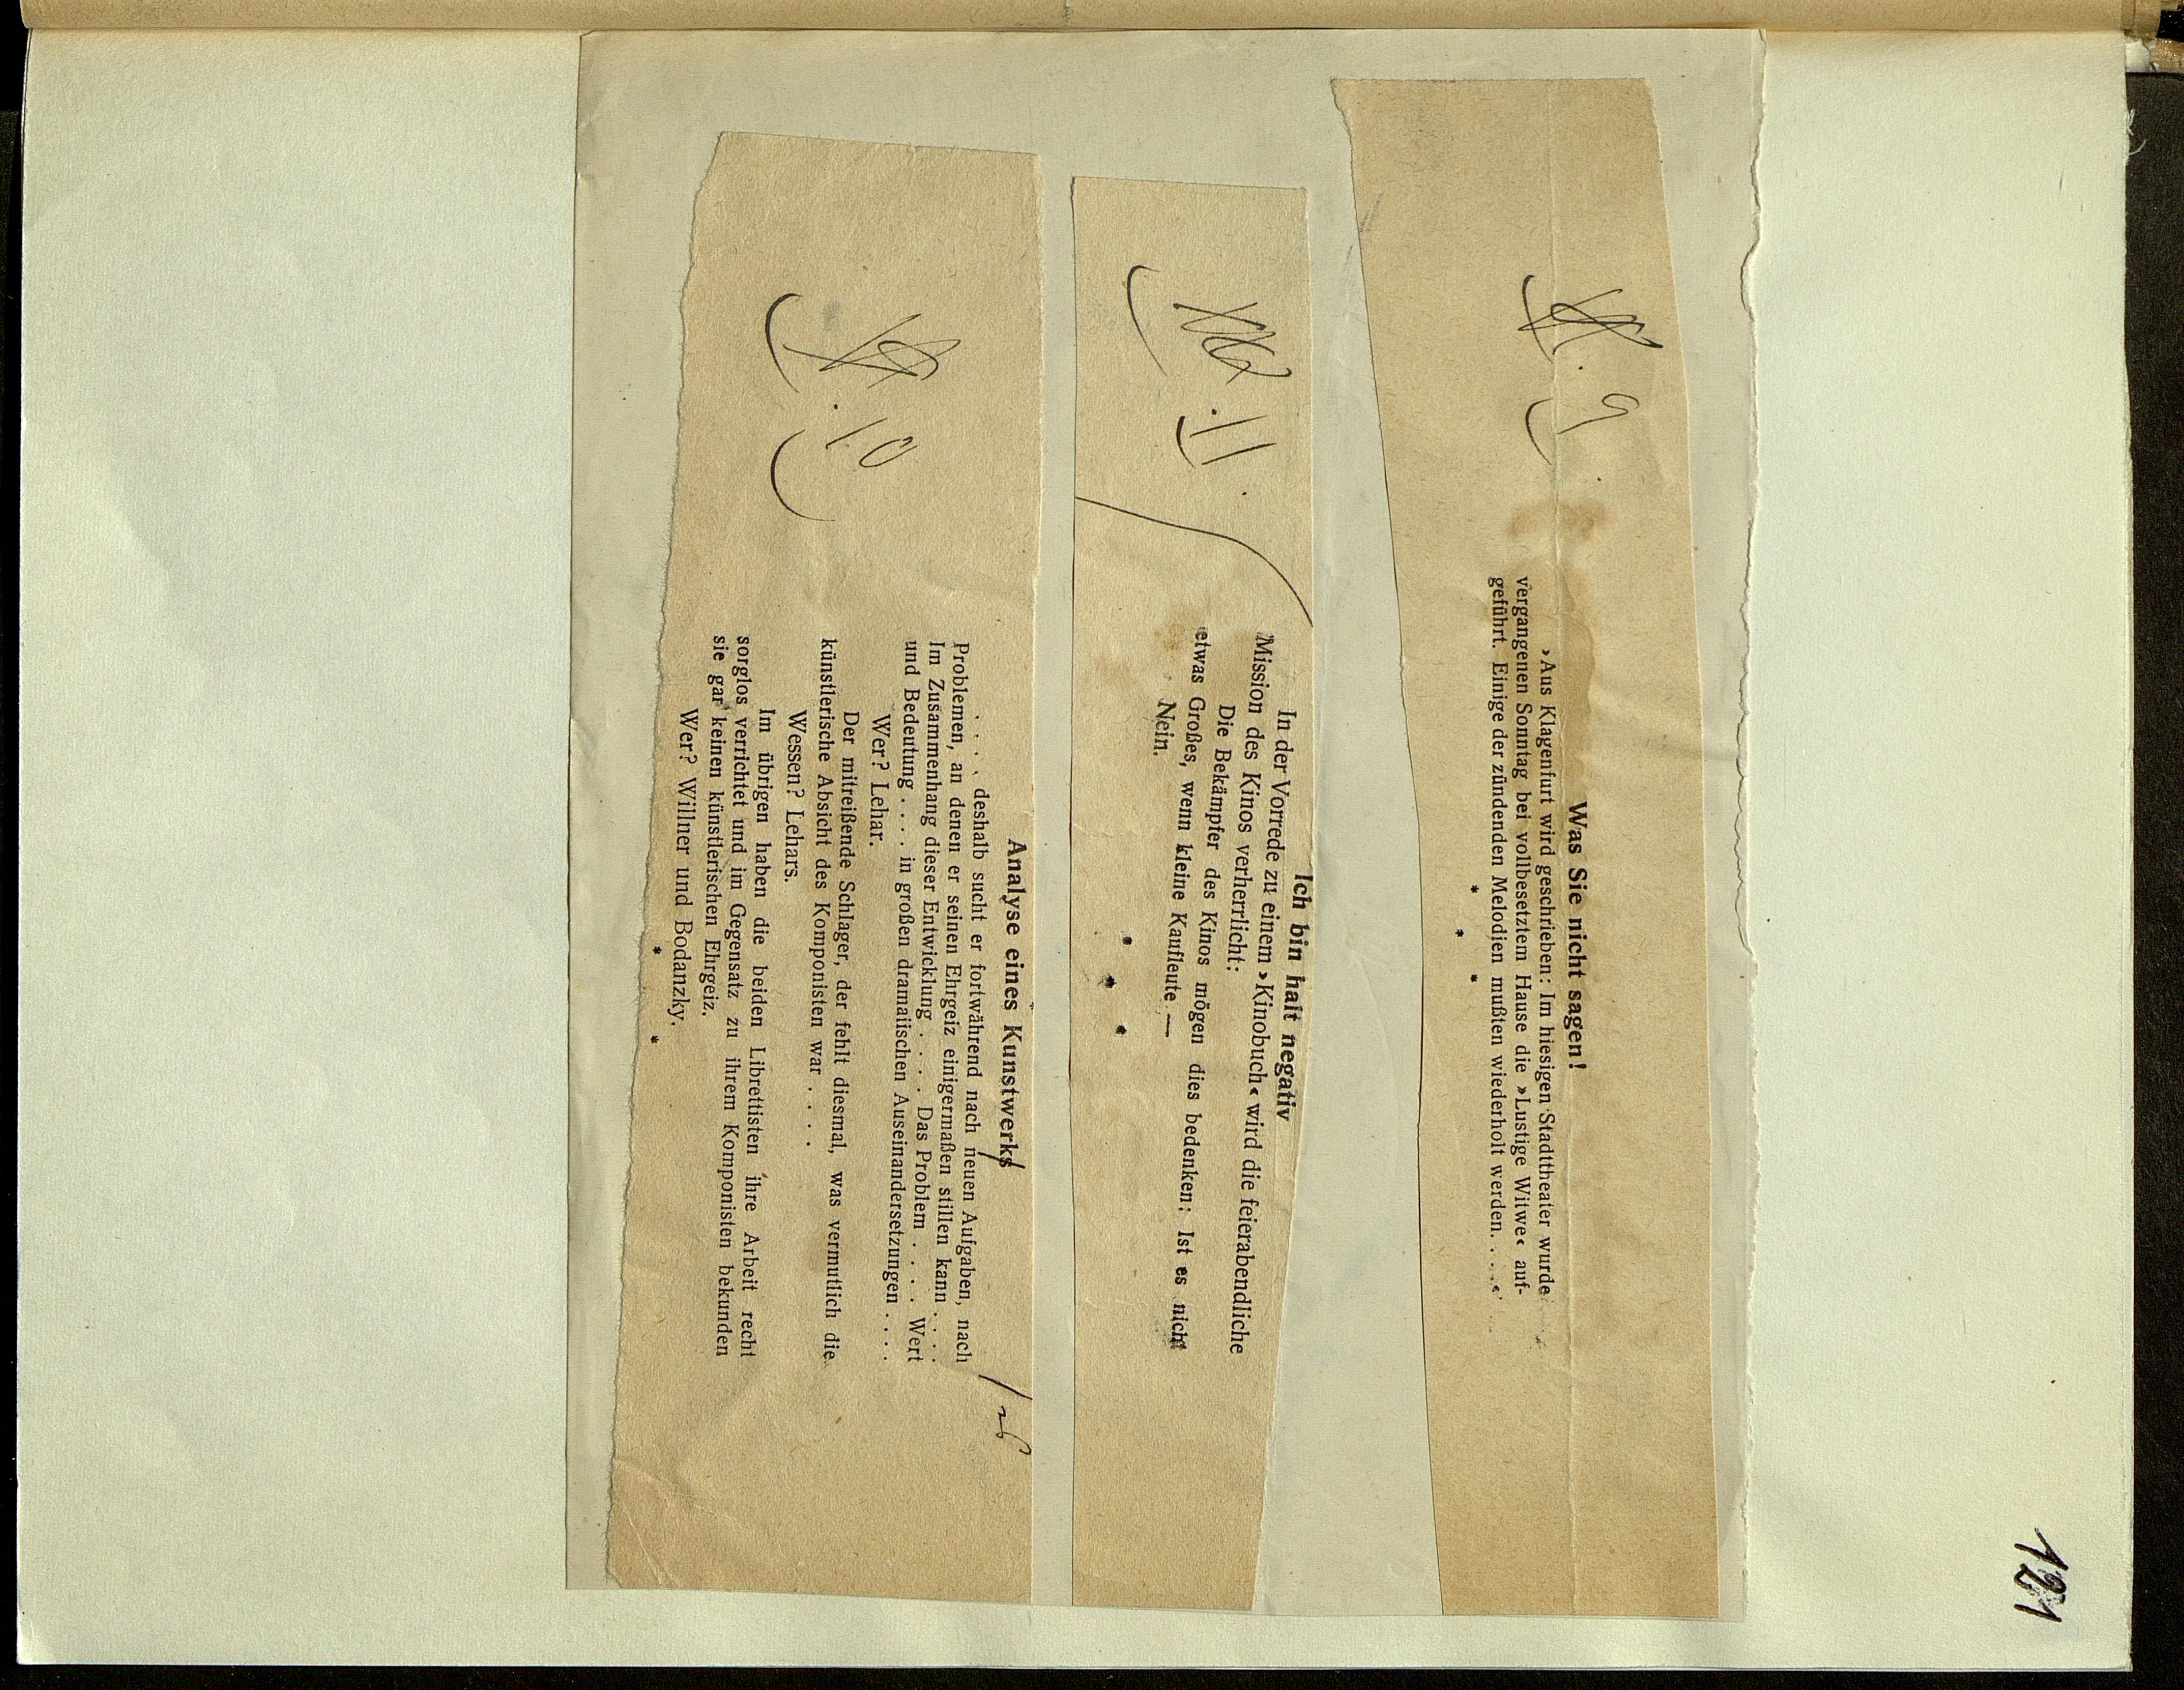 121
9
Was Sie nicht sagen!
›Aus Klagenfurt wird geschrieben: Im hiesigen Stadttheater wurde
vergangenen Sonntag bei vollbesetztem Hause die »Lustige Witwe« auf-
geführt. Einige der zündenden Melodien mußten wiederholt werden. . . .‹
* * *
11.
Ich bin halt negativ
In der Vorrede zu einem ›Kinobuch‹ wird die feierabendliche
Mission des Kinos verherrlicht:
Die Bekämpfer des Kinos mögen dies bedenken: Ist es nicht
etwas Großes, wenn kleine Kaufleute —
Nein.
* * *
10
Analyse eines Kunstwerks
. . . . deshalb sucht er fortwährend nach neuen Aufgaben, nach
Problemen, an denen er seinen Ehrgeiz einigermaßen stillen kann . . . .
Im Zusammenhang dieser Entwicklung . . . . Das Problem . . . . Wert
und Bedeutung . . . . in großen dramatischen Auseinandersetzungen . . . .
Wer? Lehar.
Der mitreißende Schlager, der fehlt diesmal, was vermutlich die
künstlerische Absicht des Komponisten war . . . .
Wessen? Lehars.
Im übrigen haben die beiden Librettisten ihre Arbeit recht
sorglos verrichtet und im Gegensatz zu ihrem Komponisten bekunden
sie gar keinen künstlerischen Ehrgeiz.
Wer? Willner und Bodanzky.
* *